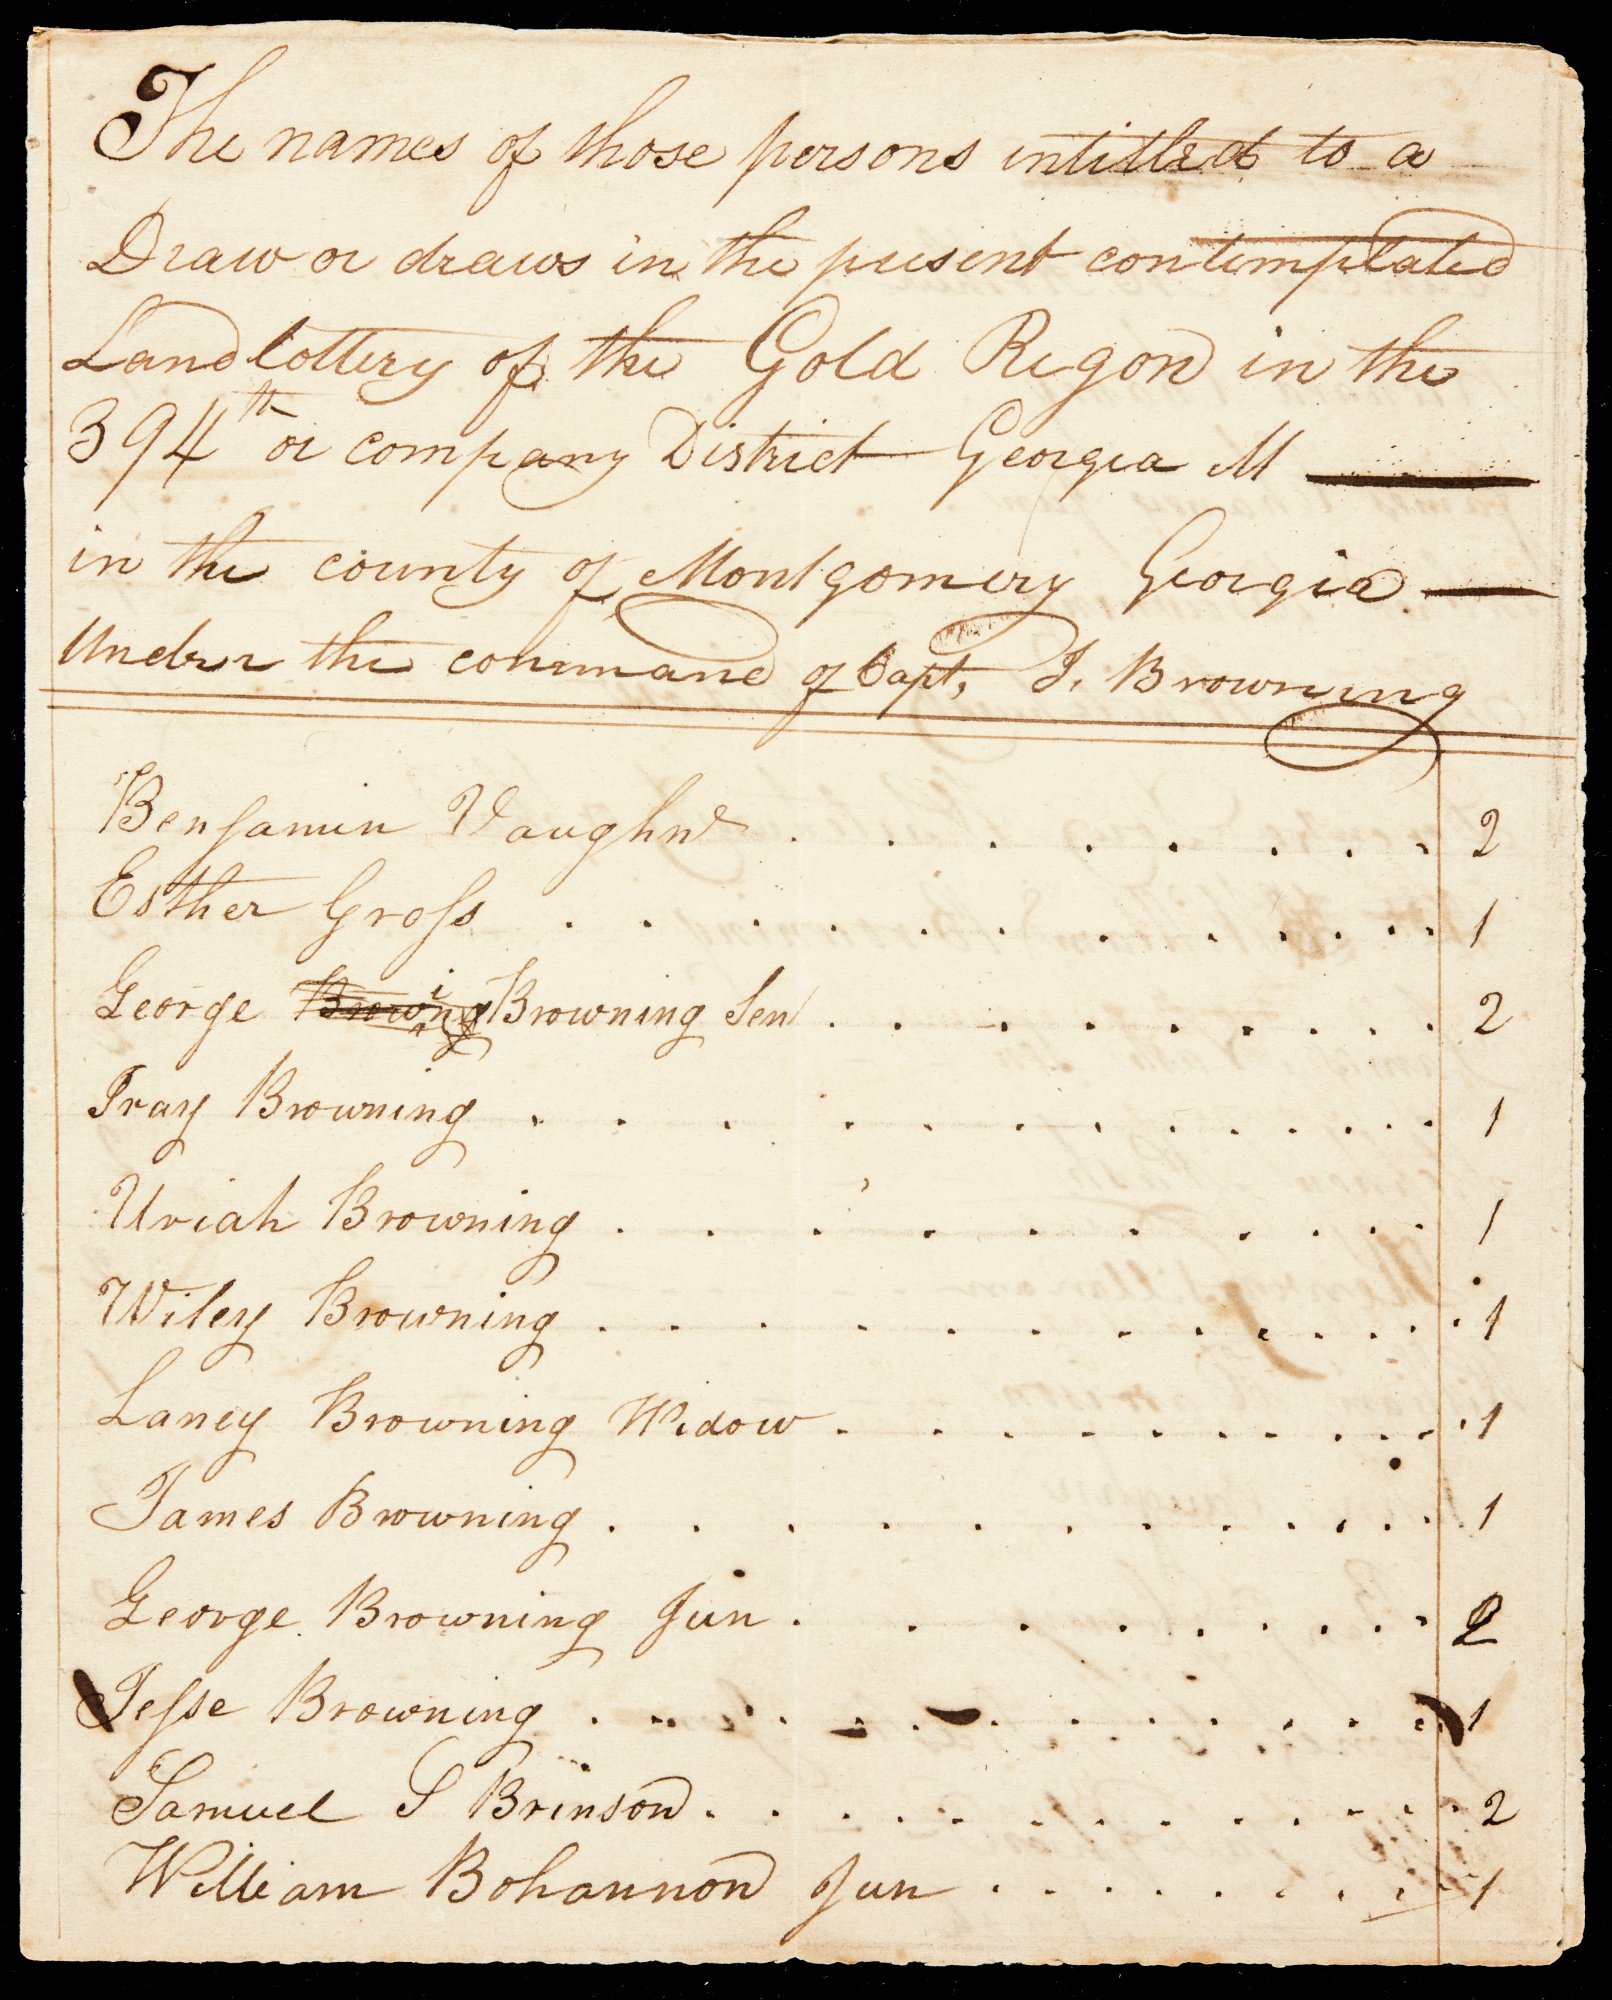 The names of those persons intitled to a
Draw or draws in the present contemplated
Land lottery of the Gold Regon in the
394th or company District Georgia M
in the county of Montgomery Georgia
Under the command of Capt, J. Browning
Benjamin Vaughn . . . . . . . . 2
Esther Gross . . . . . . . . . . . . 1
George Browning Browning Sen . . . . . . . . . . 2
Iray Browning . . . . . . . . . . . . 1
Uriah Browning . . . . . . . . . . 1
Wiley Browning . . . . . . . . . . . . 1
Laney Browning Widow . . . . . . . . . . 1
James Browning . . . . . . . . . . . 1
George Browning Jun . . . . . . . . . 2
Jesse Browning . . . . . . . . . . . . 1
Samuel S Brinson . . . . . . . . . . . 2
William Bohannon Jun . . . . . . . . . 1